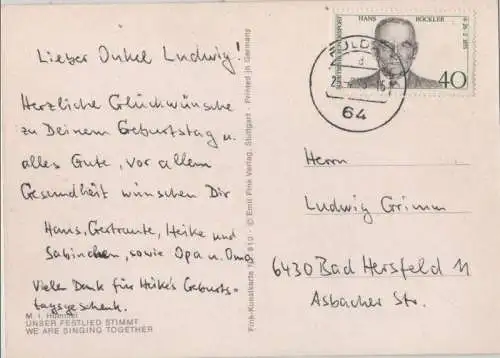 Lieber Onkel Ludwig!
Herzliche Glückwünsche
zu Deinem Geburtstag u.
alles Gute, vor allem
Gesundheit wünschen Dir
Hans, Gertraute, Heike und
Sabinchen, sowie Opa u. Oma
Vielen Dank für Heike's Geburts-
tagsgeschenk.
M. I. Hummel
UNSER FESTLIED STIMMT
WE ARE SINGING TOGETHER
Fink-Kunstkarte
© Emil Fink Verlag, Stuttgart - Printed in Germany
HANS BÖCKLER
DEUTSCHE BUNDESPOST
40
64
Herrn
Ludwig Grimm
6430 Bad Hersfeld 11
Asbacher Str.